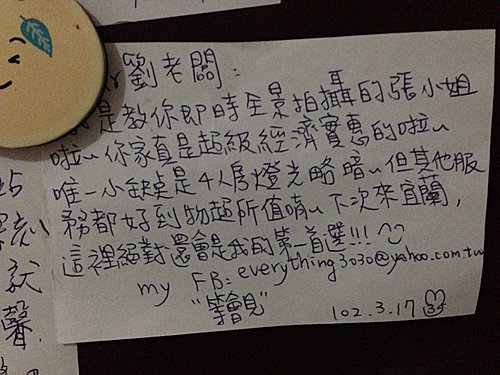 劉老闆：
我是教你即時全景拍攝的張小姐
啦~你家真是超級經濟實惠的啦~
唯一小缺點是4人房燈光略暗~但其他服
務都好到物超所值唷~下次來宜蘭，
這裡絕對還會是我的第一首選!!!
my FB:everything3030@yahoo.com.tw
102.3.17
就
馨